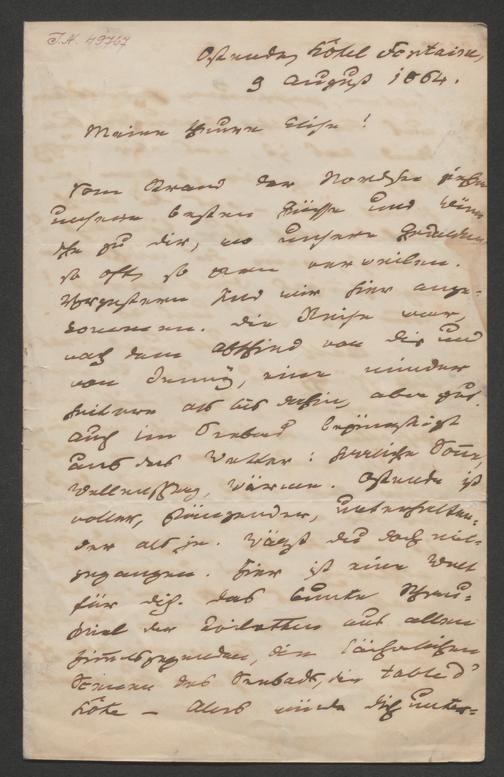 I.N. 49767
Ostende, Hôtel Fontaine,
9 August 1864.
Meine theure Elise!
Vom Strand der Nordsee ziehen
unsere besten Grüße und Wün-
sche zu dir, wo unsere Gedanken
so oft, so gern verweilen.
Vorgestern sind wir hier ange-
kommen. Die Reise war,
nach dem Abschied von dir und
von, eine minder
heitere als bis dahin, aber
auch im Seebad begünstigt
uns das Wetter: herrliche Sonne,
Wellenschlag, Wärme. Ostende ist
voller, glänzender, unterhalten-
der als je. Wärst du doch mit-
gegangen. Hier ist eine Welt
für dich. Das bunte Schau-
spiel der Toiletten aus allen
Himmelsgegenden, die lächerlichen
Scenen des Seebads, die table d'
hôte — Alles würde dich unter-